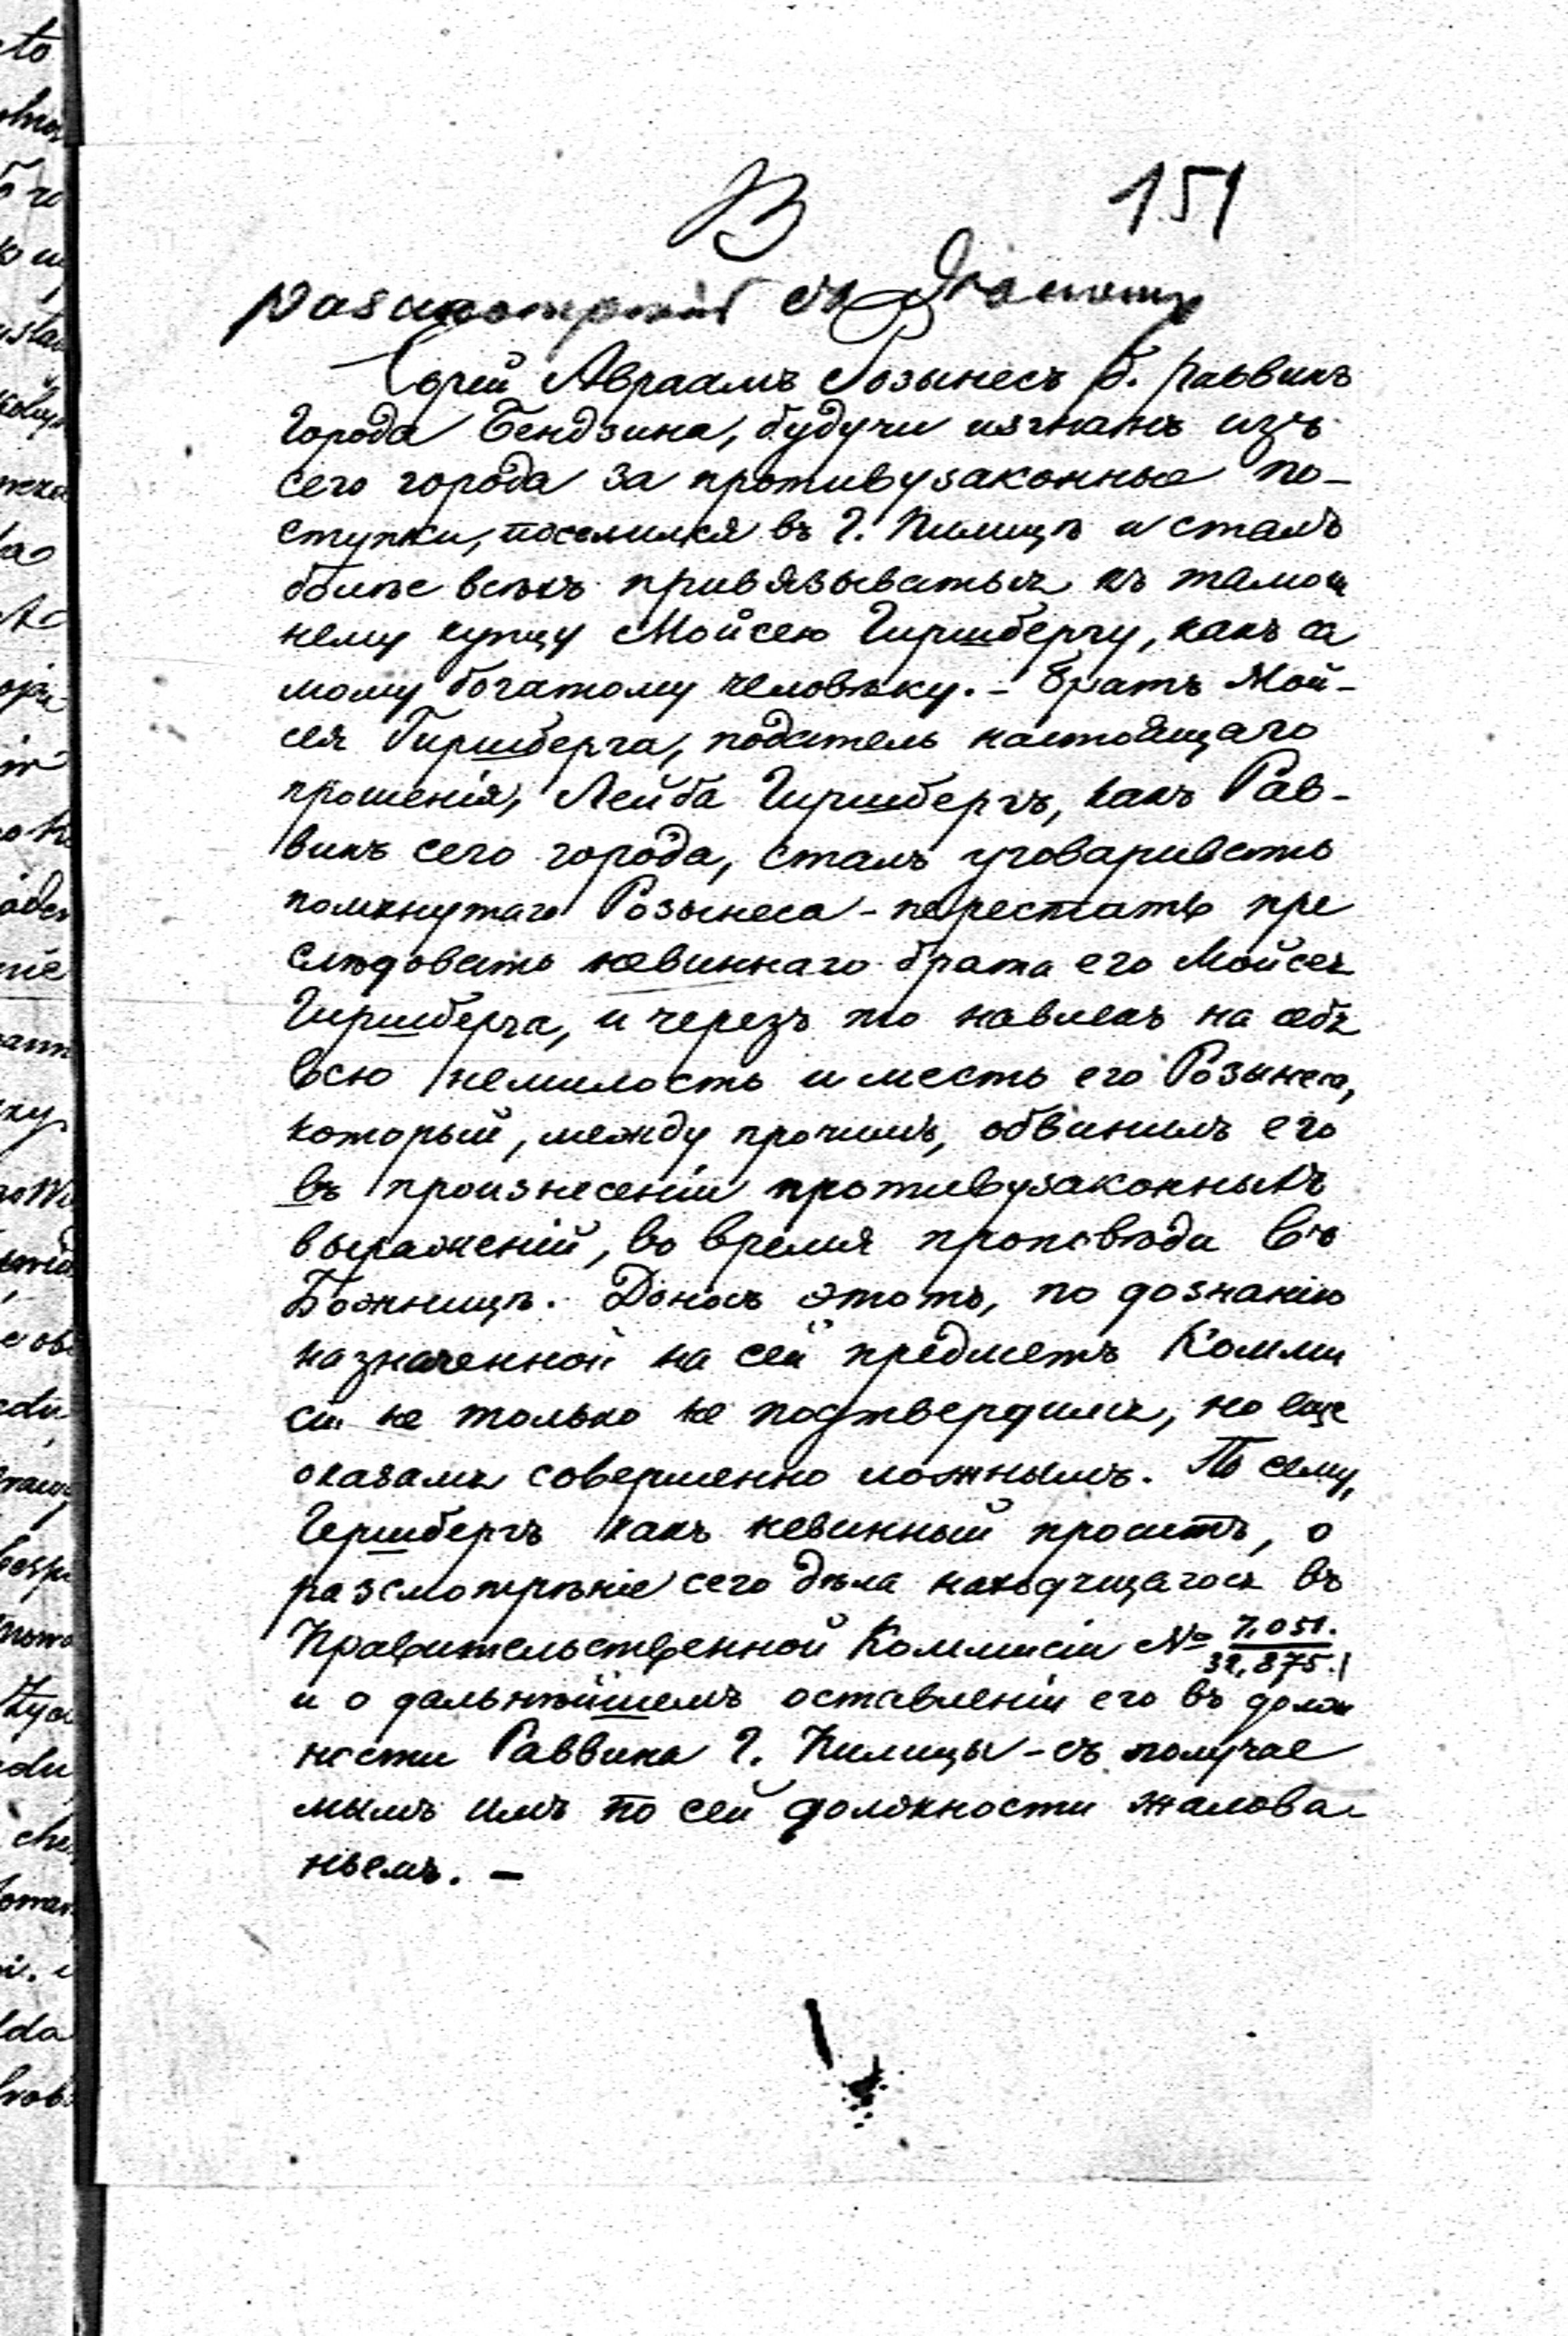 В
151
Еврей Авраамъ Розынесъ б. Раввинъ
города Бендзина, будучи изгнанъ изъ
сего города за противузаконные по-
ступки, поселился въ г. Пилицѣ и сталъ
болѣе всѣхъ привязываться къ тамош
нему купцу Мойсею Гиршбергу, какъ са
мому богатому человѣку. - Братъ Мой-
сея Гиршберга, податель настоящаго
прошенія, Лейба Гиршбергъ, какъ Рав-
винъ сего города, сталъ уговаривать
помянутаго Розынеса - перестать пре
слѣдовать невиннаго брата его Мойсея
Гиршберга, и черезъ то навлекъ на себя
всю немилость и месть его Розынеса,
который, между прочимъ, обвинилъ его
въ произнесеніи противузаконныхъ
выраженій, во время проповѣди въ
Божницѣ. Доносъ этотъ, по дознанію
назначенной на сей предметъ Комми
сіи не только не подтвердился, но еще
оказался совершенно ложнымъ. По сему,
Гершбергъ какъ невинный проситъ, о
разсмотрѣніе сего дѣла находящагося въ
Правительственной Коммисіи № 7,051.
32,875.
и о дальнѣйшемъ оставленіи его въ долж
ности Раввина г. Пилицы - съ получае
мымъ имъ по сей должности жалова-
ньемъ. -